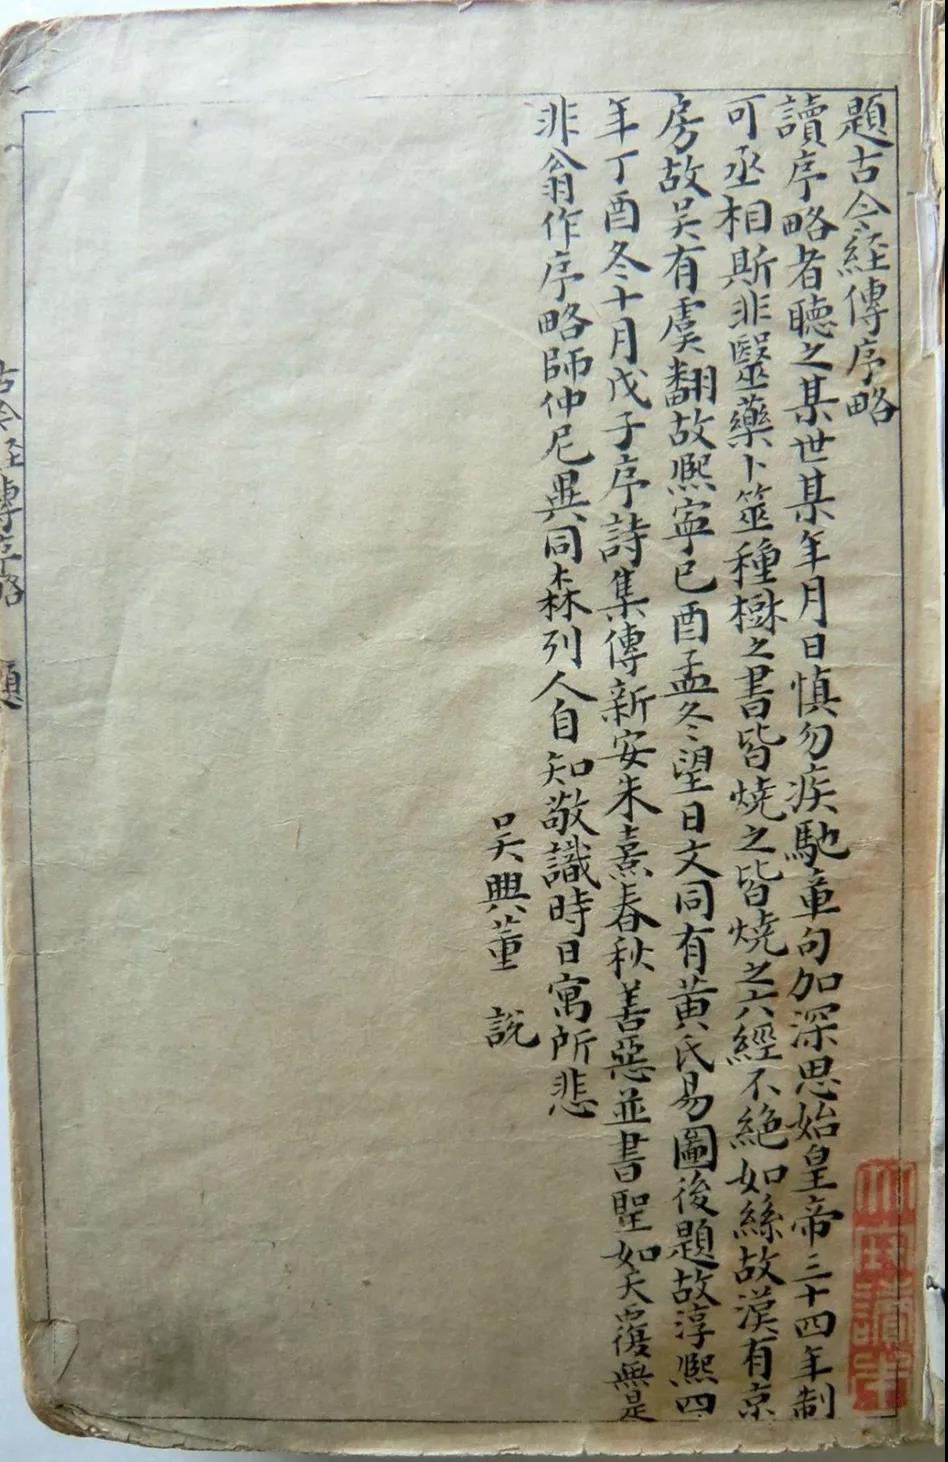 題古今經傳序略
讀序略者聴之某世某年月日慎勿疾馳章句加深思始皇帝三十四年制
可丞相斯非醫藥卜筮種樹之書皆燒之皆燒之六經不絶如絲故漢有京
房故吴有虞翻故熈寧已酉孟冬望日文同有黄氏易圖後題故淳熈四
年丁酉冬十月戊子序詩集傳新安朱熹春秋善惡並書聖如天覆無是
非翁作序略師仲尼異同森列人自知敬識時日寓所悲
吴興董 說
古今経傳序略 題